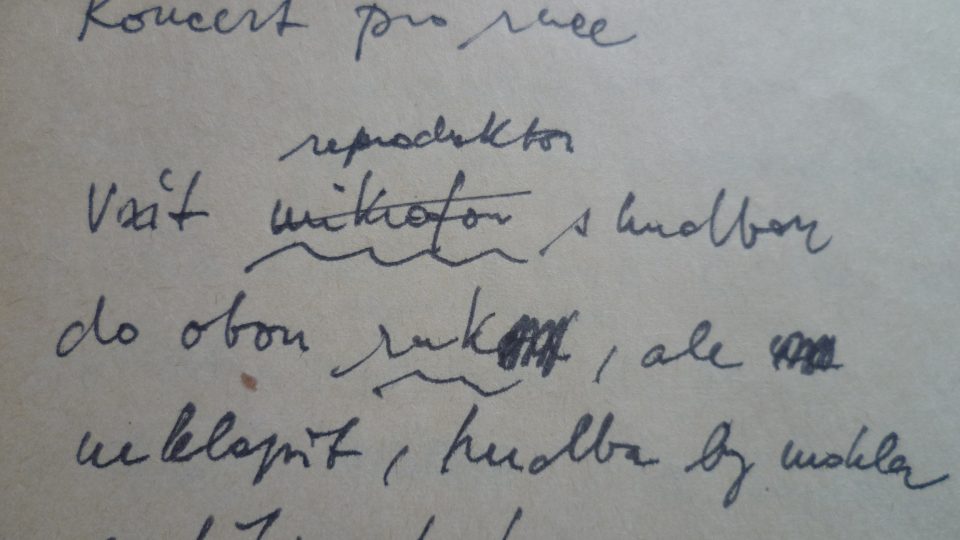 Koncert pro ruce
reproduktor
Vzít mikrofon s hudbou
do obou ruk, ale
neklopit, hudba by mohla